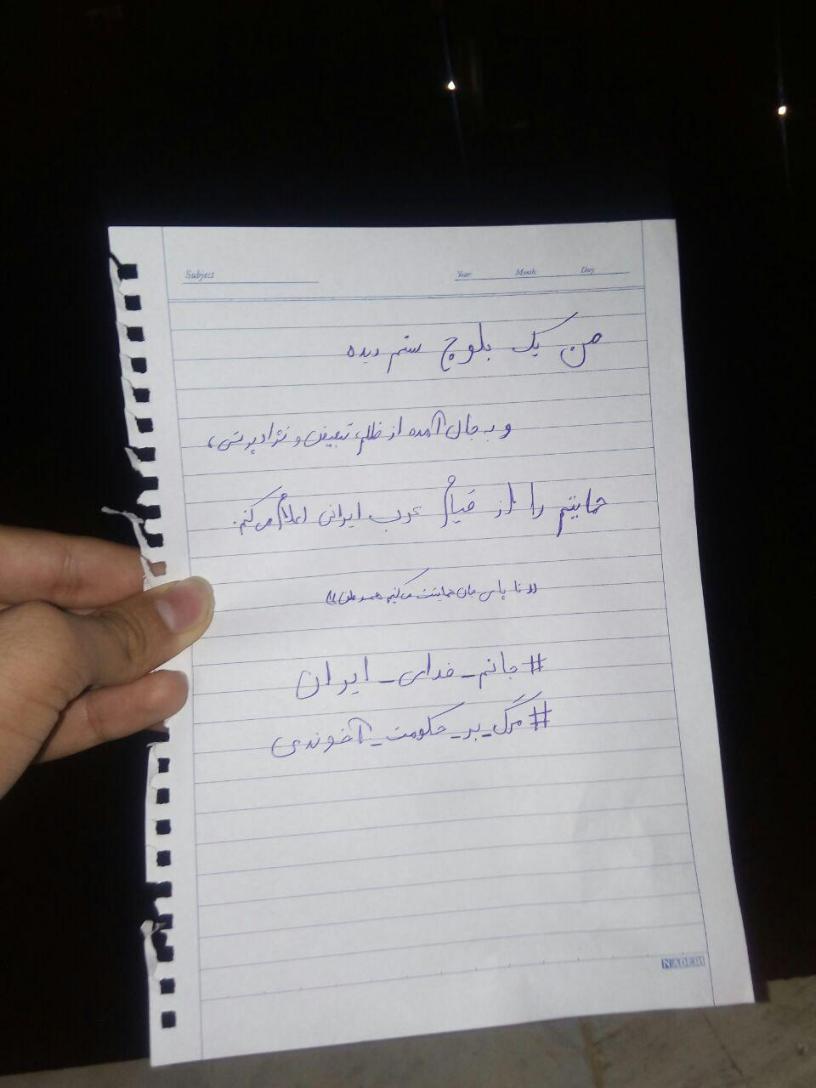 Subject Year Month Day
من یک بلوچ ستم دیده
و به جان آمده از ظلم، تبعیض و نژادپرستی،
حمایتم را از قیام عرب ایرانی اعلام می‌کنم.
((تا پای جان حمایتت می‌کنیم هموطن))
#جانم_فدای_ایران
#مرگ_بر_حکومت_آخوندی
NADERI